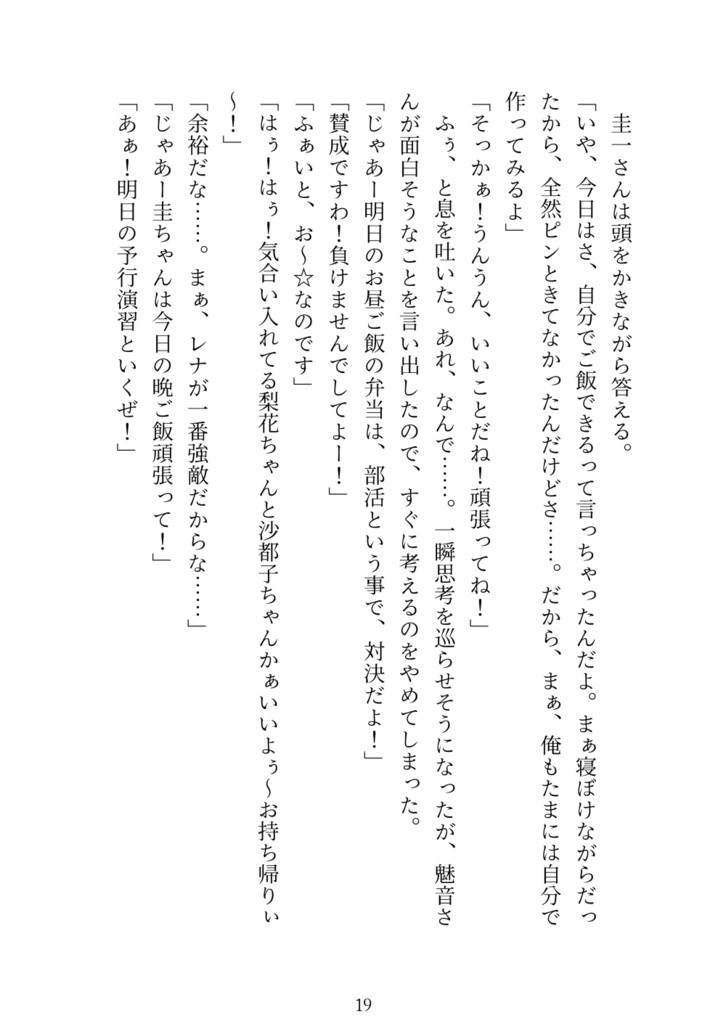 圭一さんは頭をかきながら答える。
「いや、今日はさ、自分でご飯できるって言っちゃったんだよ。まぁ寝ぼけながらだっ
たから、全然ピンときてなかったんだけどさ……。だから、まぁ、俺もたまには自分で
作ってみるよ」
「そっかぁ！うんうん、いいことだね！頑張ってね！」
　ふぅ、と息を吐いた。あれ、なんで……。一瞬思考を巡らせそうになったが、魅音さ
んが面白そうなことを言い出したので、すぐに考えるのをやめてしまった。
「じゃあー明日のお昼ご飯の弁当は、部活という事で、対決だよ！」
「賛成ですわ！負けませんでしてよー！」
「ふぁいと、お～☆なのです」
「はぅ！はぅ！気合い入れてる梨花ちゃんと沙都子ちゃんかぁいいよぅ～お持ち帰りぃ
～！」
「余裕だな……。まぁ、レナが一番強敵だからな……」
「じゃあー圭ちゃんは今日の晩ご飯頑張って！」
「あぁ！明日の予行演習といくぜ！」
19